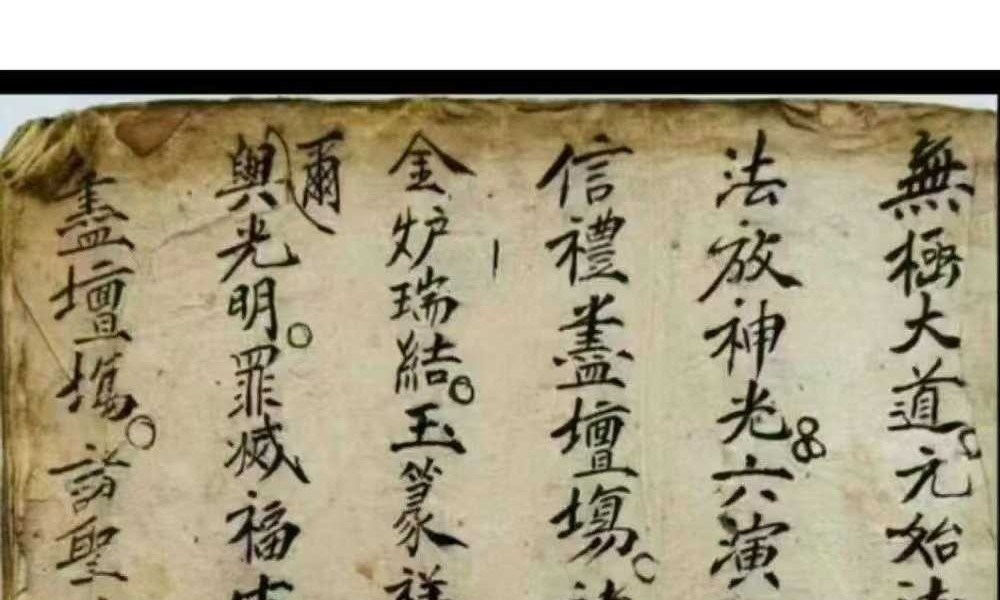 無極大道。元始
法放神光8六演
信禮盡壇塲。
金炉瑞結。玉篆祥
爾
與光明。罪滅福
盡壇塲。諸聖